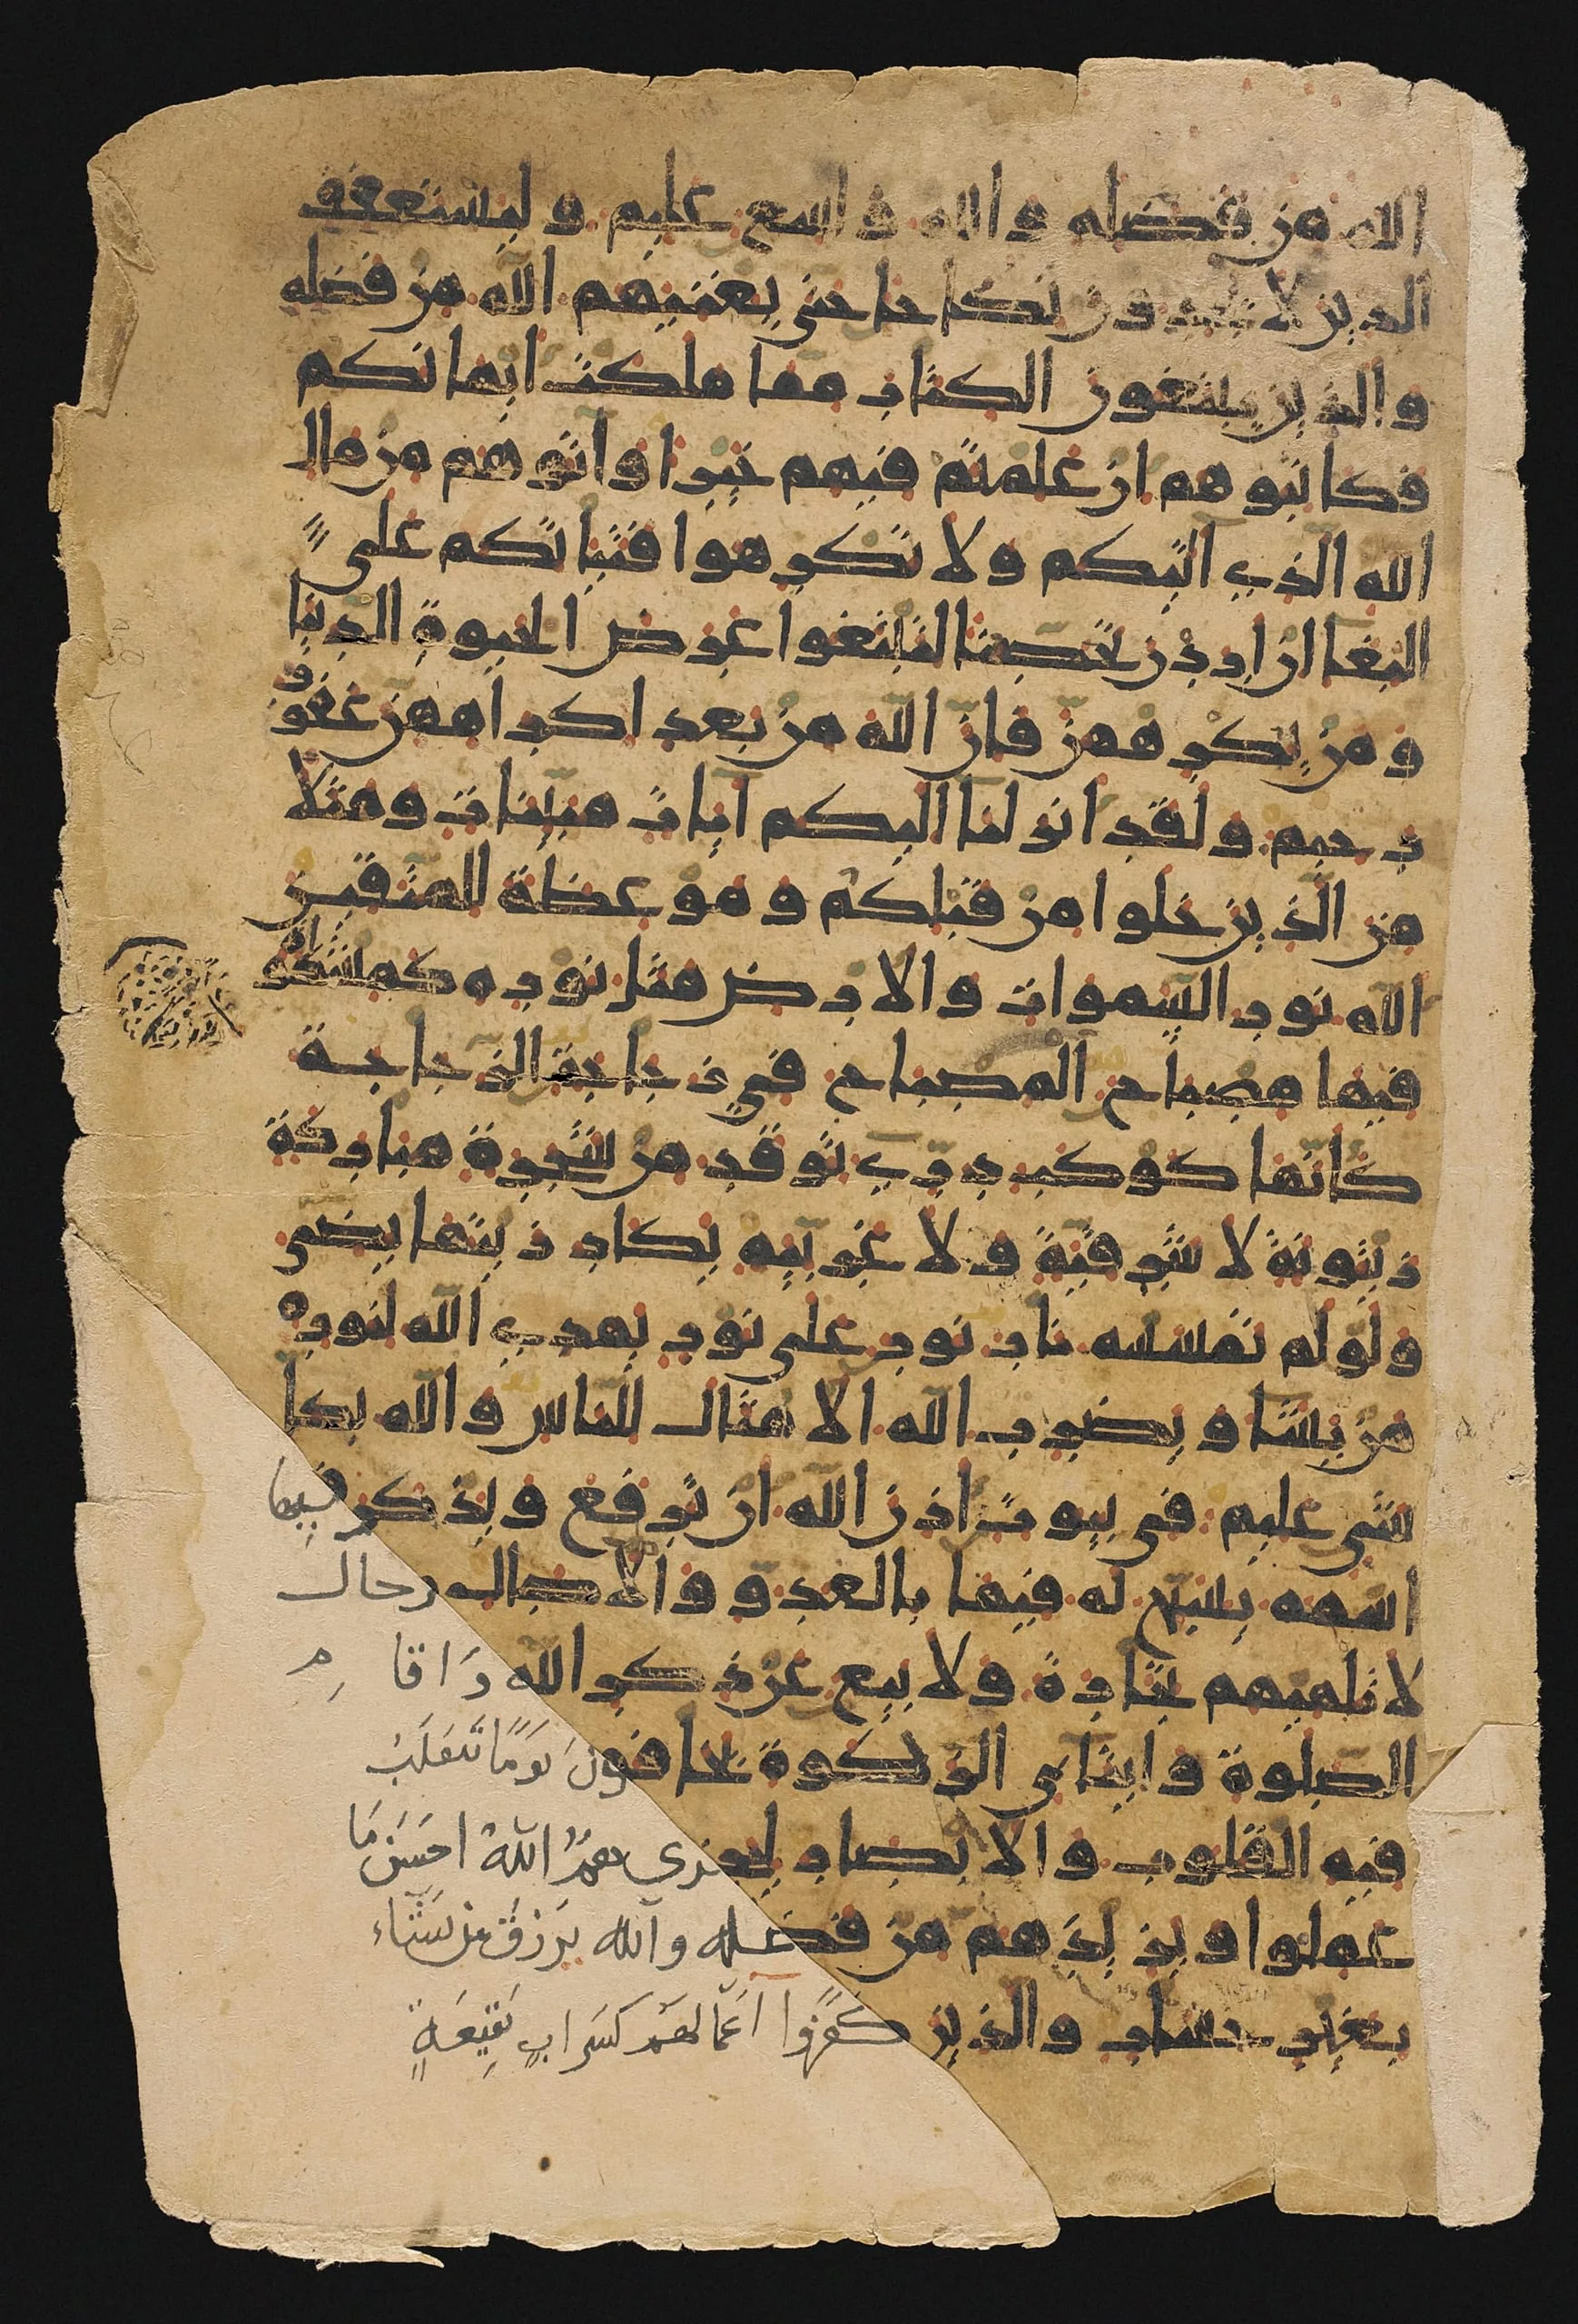 الله من فضله والله واسع عليم وليستعفف
الذين لا يجدون نكاحا حتى يغنيهم الله من فضله
والذين يبتغون الكتاب مما ملكت ايمانكم
فكاتبوهم ان علمتم فيهم خيرا وآتوهم من مال
الله الذي آتيكم ولا تكرهوا فتياتكم على
البغا ان اردن تحصنا لتبتغوا عرض الحيوة الدنيا
ومن يكرههن فان الله من بعد اكراههن غفور
رحيم ولقد انزلنا اليكم آيات مبينات ومثلا
من الذين خلوا من قبلكم وموعظة للمتقين
الله نور السموات والارض مثل نوره كمشكوة
فيها مصباح المصباح في زجاجة الزجاجة
كانها كوكب دري توقد من شجرة مباركة
زيتونة لا شرقية ولا غربيه يكاد زيتها يضى
ولو لم تمسسه نار نور على نور يهدي الله لنوره
من يشا ويضرب الله الامثال للناس والله بكل
شى عليم فى بيوت اذن الله ان ترفع ويذكر فيها
اسمه يسبح له فيها بالغدو والاصال رجال
لا تلهيهم تجارة ولا بيع عن ذكر الله واقام
الصلوة وايتآى الزكوة يخافون يَومًا تَتَقلَبُ
فيه القلوب والابصار ليجزي هم اللّهُ احسَنَ مَا
عملوا ويزيدهم من فضله والله يَرزقُ من يَشَاء
بغير حساب والذين كَفَرُوا اَعمالهم كَسَرابٍ بَقِيعَةٍ